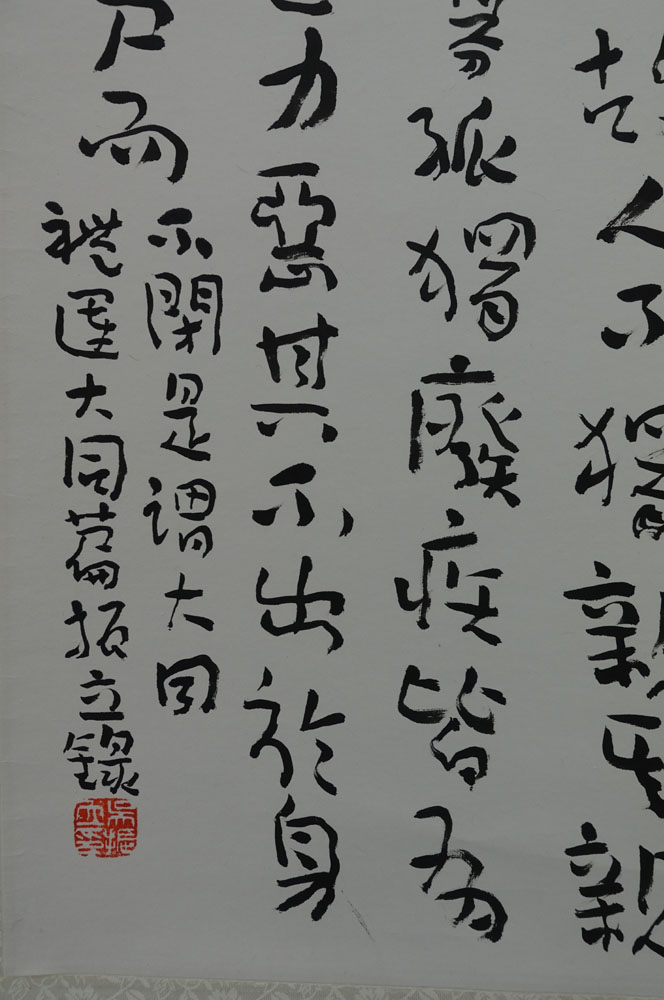 故人不獨親其親
孤獨廢疾皆有
力惡其不出於身
戶而
不閉是謂大同
禮運大同篇振立錄